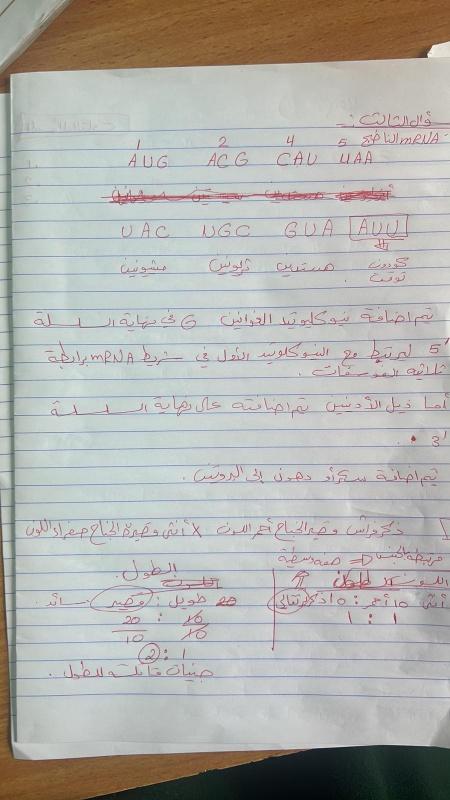 سؤال الثالث :-
mRNA الناضج
1 2 4 5
AUG ACG CAU UAA
UAC UGC GUA AUU
ميثونين ثريونين هستدين كودون توقف .
تم اضافة نيوكليوتيد الغوانين G في نهاية السلسلة
5' ليرتبط مع النيوكليوتيد الأول في شريط mRNA برابطة
ثلاثية الفوسفات .
أما ذيل الأدنين تم اضافته على نهاية السلسلة
3' .
تم اضافة سكر أو دهون إلى البروتين .
ذكر فراش قصير الجناح أحمر اللون X أنثى قصيرة الجناح صفراء اللون
الطول .
طويل : قصير سائد
20 : 10
10 10
2 : 1
جينات قاتلة للطول .
مرتبطة بالجنس صفة
اللون
أنثى 10 أحمر : 10 ذكر
1 : 1